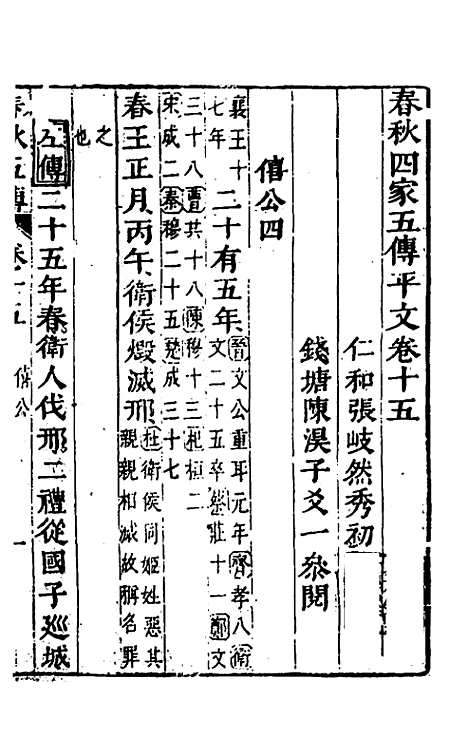 春秋四家五傳平文卷十五
仁和張岐然秀初
錢塘陳淏子爻一叅閱
僖公四
襄王十七年
二十有五年
晉文公重耳元年齊孝八衛
文二十五卒蔡莊十一鄭文
三十八曹共十八陳穆十三杞桓二
宋成二秦穆二十五楚成三十七
春王正月丙午衛侯燬滅邢
杜衛侯同姬姓惡其
親親相滅故稱名罪
之也
左傳二十五年春衛人伐邢二禮從國子廵城
春秋五傳 卷十五 僖公 一